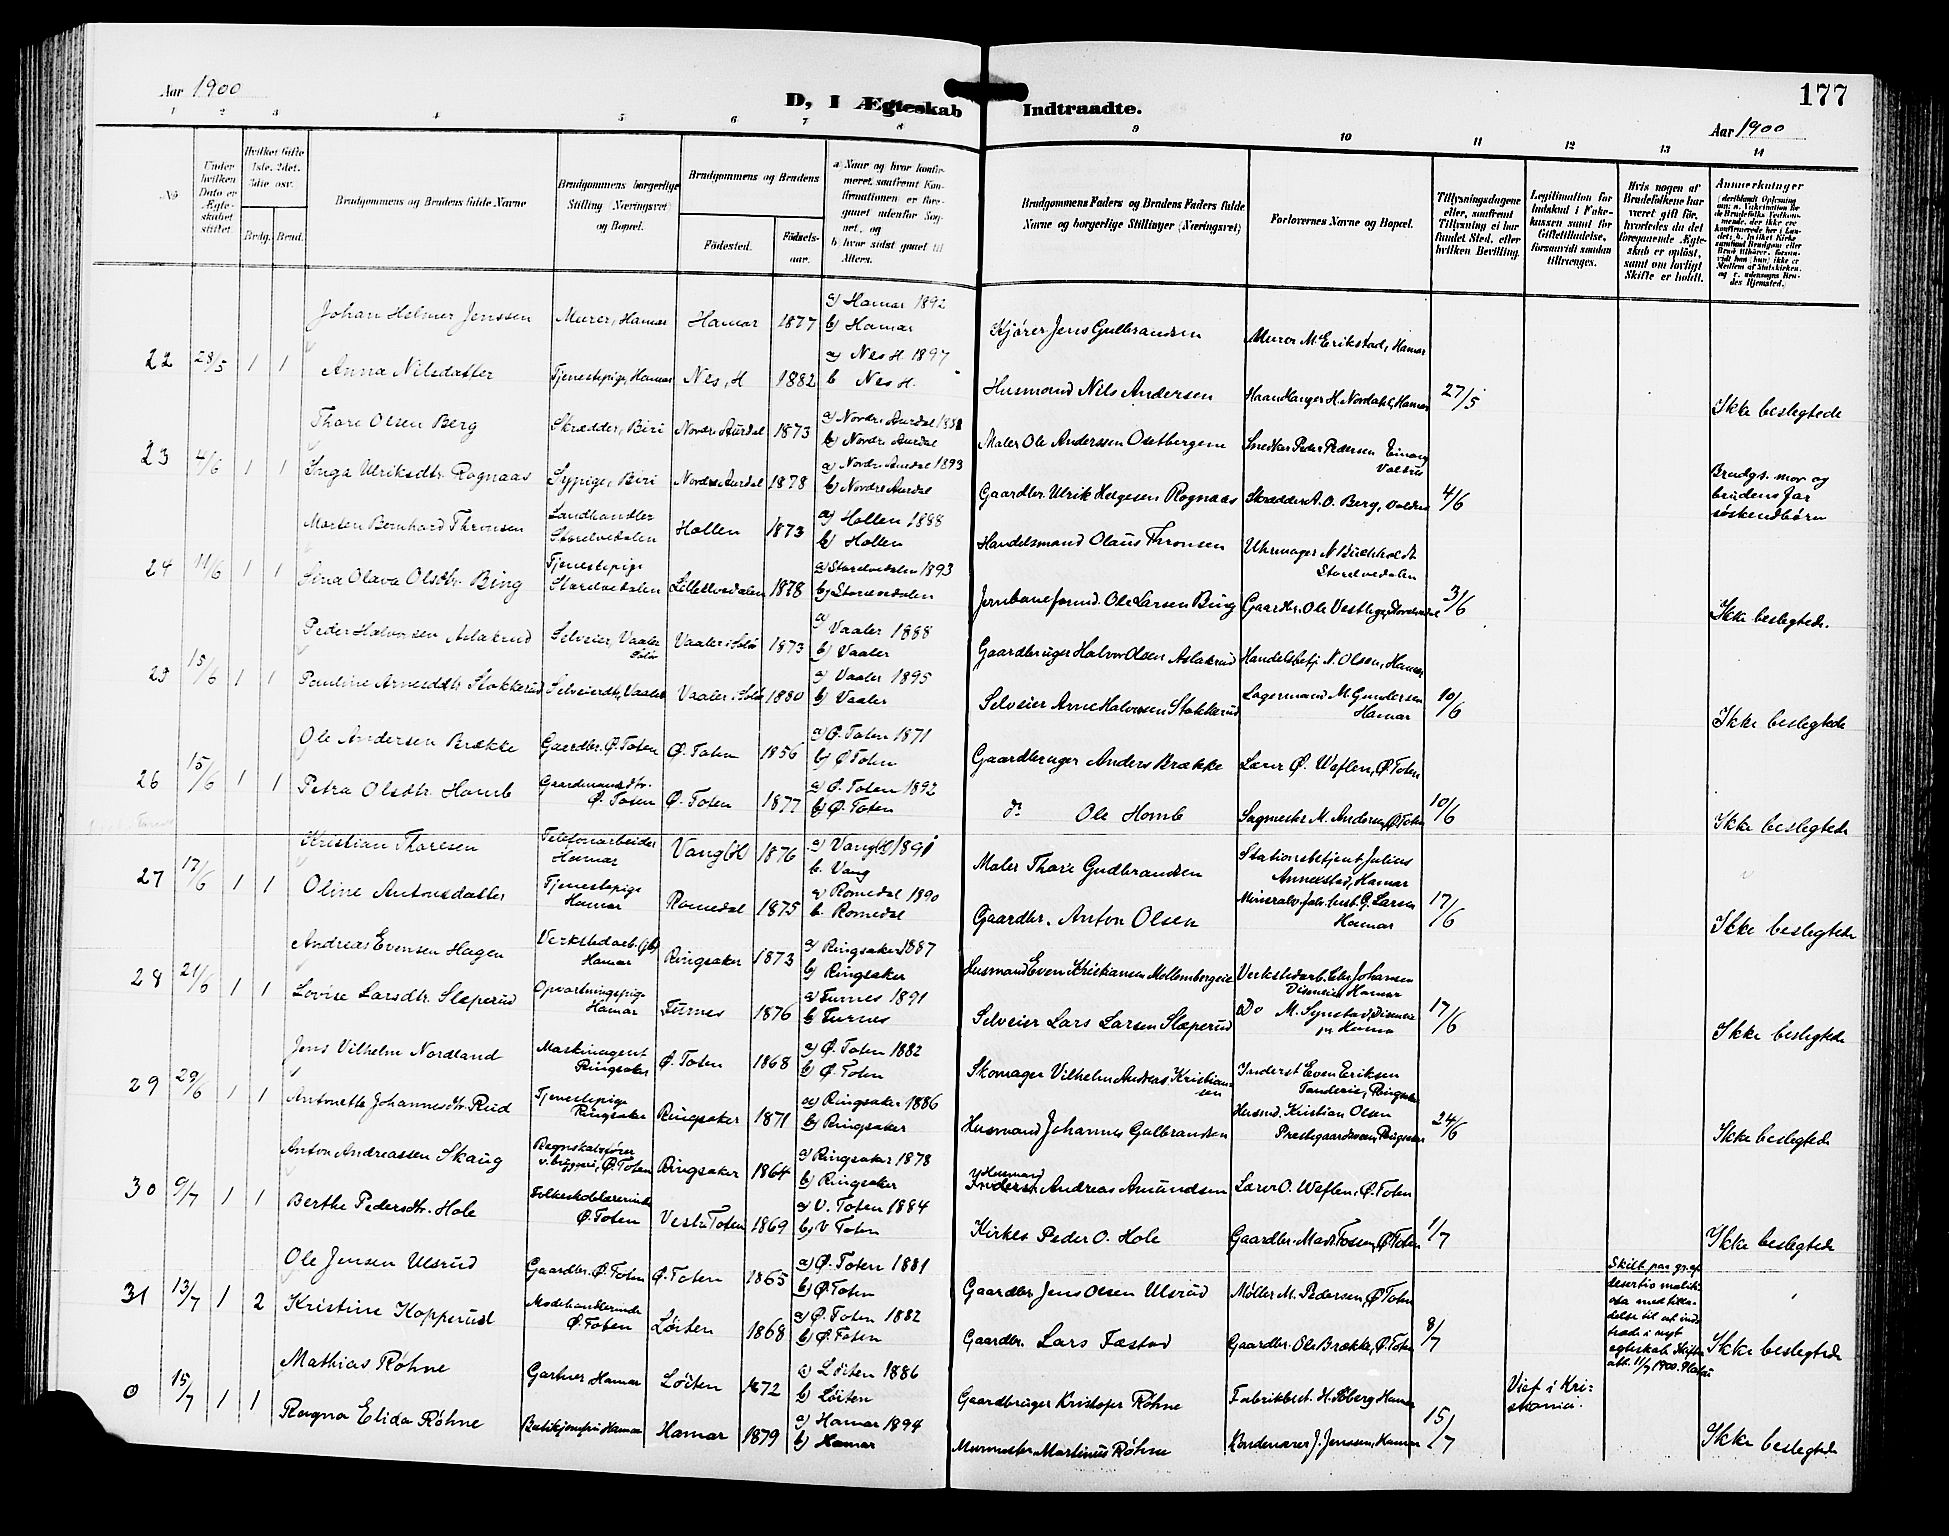 Aar 1900
D, I Ægteskab Indtraadte.
177
Aar 1900
1 2 3 4 5 6 7 8 9 10 11 12 13 14
No
Under hvilken Dato er Ægteskabet stiftet.
Hvilket Gifte 1ste, 2det, 3die osv.
Brdg. Brud.
Brudgommens og Brudens fulde Navne
Brudgommens borgerlige Stilling (Næringsvei) og Bopæl.
Brudgommens og Brudens
Fødested.
Fødselsaar.
a) Naar og hvor konfirmeret, saafremt Konfirmationen er foregaaet udenfor Sognet, og
b) hvor sidst gaaet til Alters.
Brudgommens Faders og Brudens Faders fulde Navne og borgerlige Stillinger (Næringsvei)
Forlovernes Navne og Bopæl.
Tillysningsdagene eller, saafremt Tillysning ei har fundet Sted, efter hvilken Bevilling.
Legitimation for Indskud i Enkekassen samt for Giftetilladelse, forsaavidt saadan tiltrænges.
Hvis nogen af Brudefolkene har været gift før, hvorledes da det foregaaende Ægteskab er opløst, samt om lovligt Skifte er holdt.
Anmerkninger
Johan Helmer Jenssen Murer, Hamar Hamar 1877 a) Hamar 1892 b) Hamar Kjører Jens Gulbrandsen Murer M. Erikstad, Hamar
22 28/5 1 1 Anna Nilsdatter Tjenestepige, Hamar Nes, H 1882 a) Nes H. 1897 b Nes H. Husmand Nils Andersen Haandlanger H. Nordahl, Hamar 27/5 Ikke beslegtede
Thore Olsen Berg Skrædder, Biri Nordre Aurdal 1873 a) Nordre Aurdal b) Nordre Aurdal Maler Ole Anderssen Snedker Peder Pedersen
23 4/6 1 1 Inga Ulriksdtr. Rognaas Sypige, Biri Nordre Aurdal 1878 a) Nordre Aurdal 1893 b) Nordre Aurdal Gaardbr. Ulrik Helgesen Rognaas Skrædder A. O. Berg, Valdres 4/6 Brudgs. mor og brudens far søskendbørn
Morten Bernhard Thronsen Landhandler Storelvedalen Hollen 1873 a) Hollen 1888 b) Hollen Handelsmand Olaus Thronsen Uhrmager N. Buchholdt Storelvedalen
24 11/6 1 1 Sina Olava Olsdtr. Bing Tjenestepige Storelvedalen Lilleelvedalen 1878 a) Storelvedalen 1893 b) Storelvedalen Jernbaneformd. Ole Larsen Bing Gaardbr. Ole 3/6 Ikke beslegtede.
Peder Halvorsen Aslakrud Selveier, Vaaler Solør Vaaler i Solør 1873 a) Vaaler 1888 b) Vaaler Gaardbruger Halvor Olsen Aslakrud Handelsbetj. N. Olsen, Hamar
25 15/6 1 1 Pauline Arnesdtr. Stokkerud Selveierdtr, Vaaler Vaaler i Solør 1880 a) Vaaler 1895 b) Vaaler Selveier Arne Halvorsen Stokkerud Lagermand M. Gundersen Hamar 10/6 Ikke beslegtede
Ole Andersen Brække Gaardbr. Ø. Toten Ø. Toten 1856 a) Ø. Toten 1871 b) Ø Toten Gaardbruger Anders Brække Lærer Ø. Weflen, Ø Toten
26 15/6 1 1 Petra Olsdtr. Homb Gaardmandsdtr. Ø. Toten Ø. Toten 1877 a) Ø. Toten 1892 b) Ø. Toten do Ole Homb Sagmester M. Andersen, Ø Toten 10/6 Ikke beslegtede
Kristian Thoresen Telefonarbeider Hamar Vang (H) 1876 a) Vang (H) 1891 b. Vang Maler Thore Gudbrandsen Stationsbetjent Julius Annexstad, Hamar
27 17/6 1 1 Oline Antonsdatter Tjenestepige Hamar Romedal 1875 a) Romedal 1890 b. Romedal Gaardbr. Anton Olsen Mineralv.fab.best. G. Larsen Hamar 17/6 Ikke beslegtede
Andreas Evensen Hagen Verkstedarb. (jb) Hamar Ringsaker 1873 a) Ringsaker 1887 b) Ringsaker Husmand Even Kristiansen Verkstedarb. Johansen Hamar
28 21/6 1 1 Lovise Larsdtr. Slæperud Opvartningspige Hamar Furnes 1876 a) Furnes 1891 b) Furnes Selveier Lars Larsen Slæperud Do M. Synstad, 17/6 Ikke beslegtede
Jens Vilhelm Nordland Maskinagent Ringsaker Ø. Toten 1868 a) Ø. Toten 1882 b) Ø. Toten Skomager Vilhelm Anders Kristiansen Inderst Even Eriksen Ringsaker
29 29/6 1 1 Antonette Johannesdtr. Rud Tjenestepige Ringsaker Ringsaker 1871 a) Ringsaker 1886 b) Ringsaker Husmand Johannes Gulbrandsen Husmd. Kristian Olsen Ringsaker 24/6 Ikke beslegtede
Anton Andreassen Skaug Regnskabsfører v. bryggeri, Ø Toten Ringsaker 1864 a) Ringsaker 1878 b) Ringsaker Husmand Inderst Andreas Amundsen Lærer O. Weflen, Ø. Toten
30 6/7 1 1 Berthe Pedersdtr. Hole Folkeskolelærerinde Ø. Toten Vestr. Toten 1869 a) V. Toten 1884 b) V Toten Kirkes. Peder O. Hole Gaardbr. Mads Fossen, Ø Toten 1/7 Ikke beslegtede
Ole Jensen Ulsrud Gaardbr. Ø. Toten Ø. Toten 1865 a) Ø. Toten 1881 b) Ø Toten Gaardbr Jens Olsen Ulsrud Møller M. Pedersen, Ø Toten
31 13/7 1 2 Kristine Kopperud Modehandlerinde Ø. Toten Løiten 1868 a) Ø. Toten 1882 b) Ø. Toten Gaardbr. Lars Fæstad Gaardbr. Ole Brække, Ø. Toten 8/7 Skilt paa gr. af desertio malitiosa med tilladelse til at indtræde i nyt egteskab. Skifteatt. 11/7 1900. Ikke beslegtede
Mathias Røhne Gartner Hamar Løiten 1872 a) Løiten 1886 b) Løiten Gaardbruger Kristofer Røhne Fabrikbest. H. Hamar
0 15/7 1 1 Ragna Elida Røhne Butikjomfru Hamar Hamar 1879 a) Hamar 1894 b) Hamar Murmester Martinus Røhne J. Jenssen, Hamar 15/7 Viet i Kristiania. Ikke beslegtede